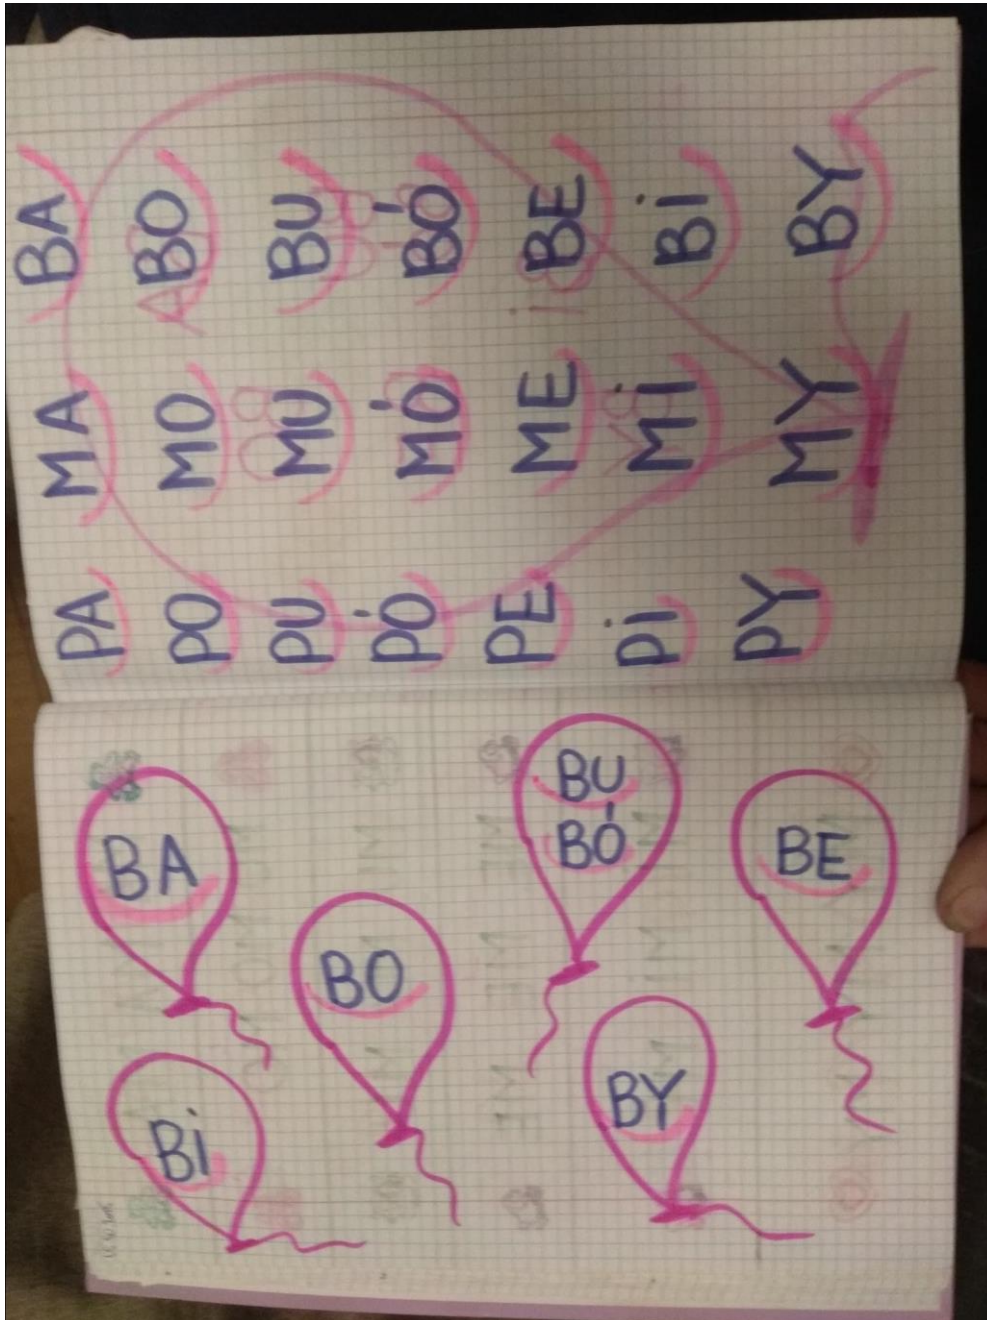 PA MA BA
PO MO BO
PU MU BU
PÓ MÓ BÓ
PE ME BE
Pi Mi Bi
PY MY BY
BU
BÓ
BA
BE
BO
BY
Bi